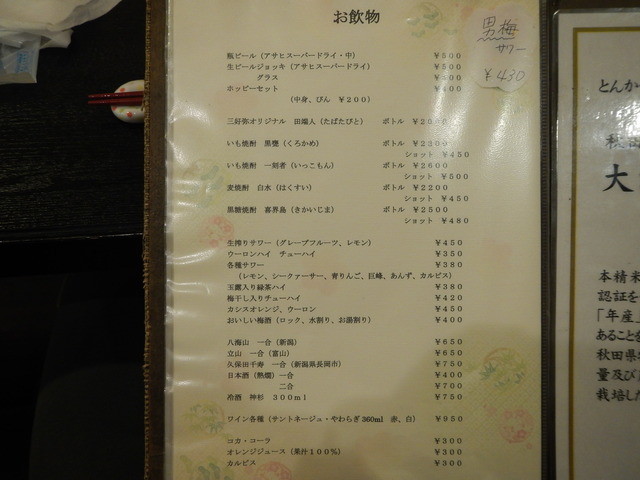 お飲物
男梅
サワー
¥430
瓶ビール（アサヒスーパードライ・中） ¥500
生ビールジョッキ（アサヒスーパードライ） ¥500
グラス
ホッピーセット ¥400
（中身、びん ¥200）
三好弥オリジナル 田端人（たばたびと） ボトル
いも焼酎 黒甕（くろかめ） ボトル ¥2300
ショット ¥450
いも焼酎 一刻者（いっこもん） ボトル ¥2600
ショット ¥500
麦焼酎 白水（はくすい） ボトル ¥2200
ショット ¥450
黒糖焼酎 喜界島（きかいじま） ボトル ¥2500
ショット ¥480
生搾りサワー（グレープフルーツ、レモン） ¥450
ウーロンハイ チューハイ ¥350
各種サワー ¥380
（レモン、シークァーサー、青りんご、巨峰、あんず、カルピス）
玉露入り緑茶ハイ ¥380
梅干し入りチューハイ ¥420
カシスオレンジ、ウーロン ¥450
おいしい梅酒（ロック、水割り、お湯割り） ¥400
八海山 一合（新潟） ¥650
立山 一合（富山） ¥650
久保田千寿 一合（新潟県長岡市） ¥750
日本酒（熱燗）一合 ¥400
二合 ¥700
冷酒 神杉 300ml ¥750
ワイン各種（サントネージュ・やわらぎ360ml 赤、白） ¥950
コカ・コーラ ¥300
オレンジジュース（果汁100%） ¥300
カルピス ¥300
とんか
秋田
大
本精米
認証を
「年産」
あることを
秋田県
量及び
栽培した